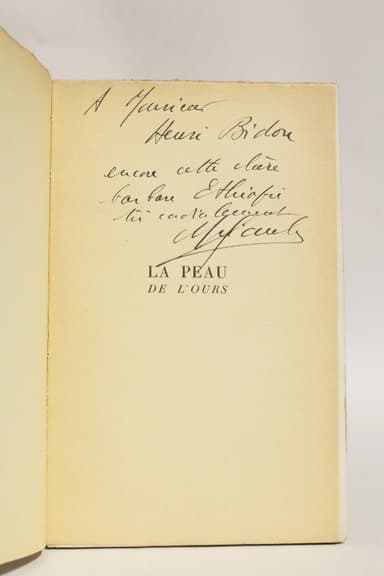 A Monsieur
Henri Bidou
encore cette chère
barbare Ethiopie
très cordialement
LA PEAU
DE L'OURS